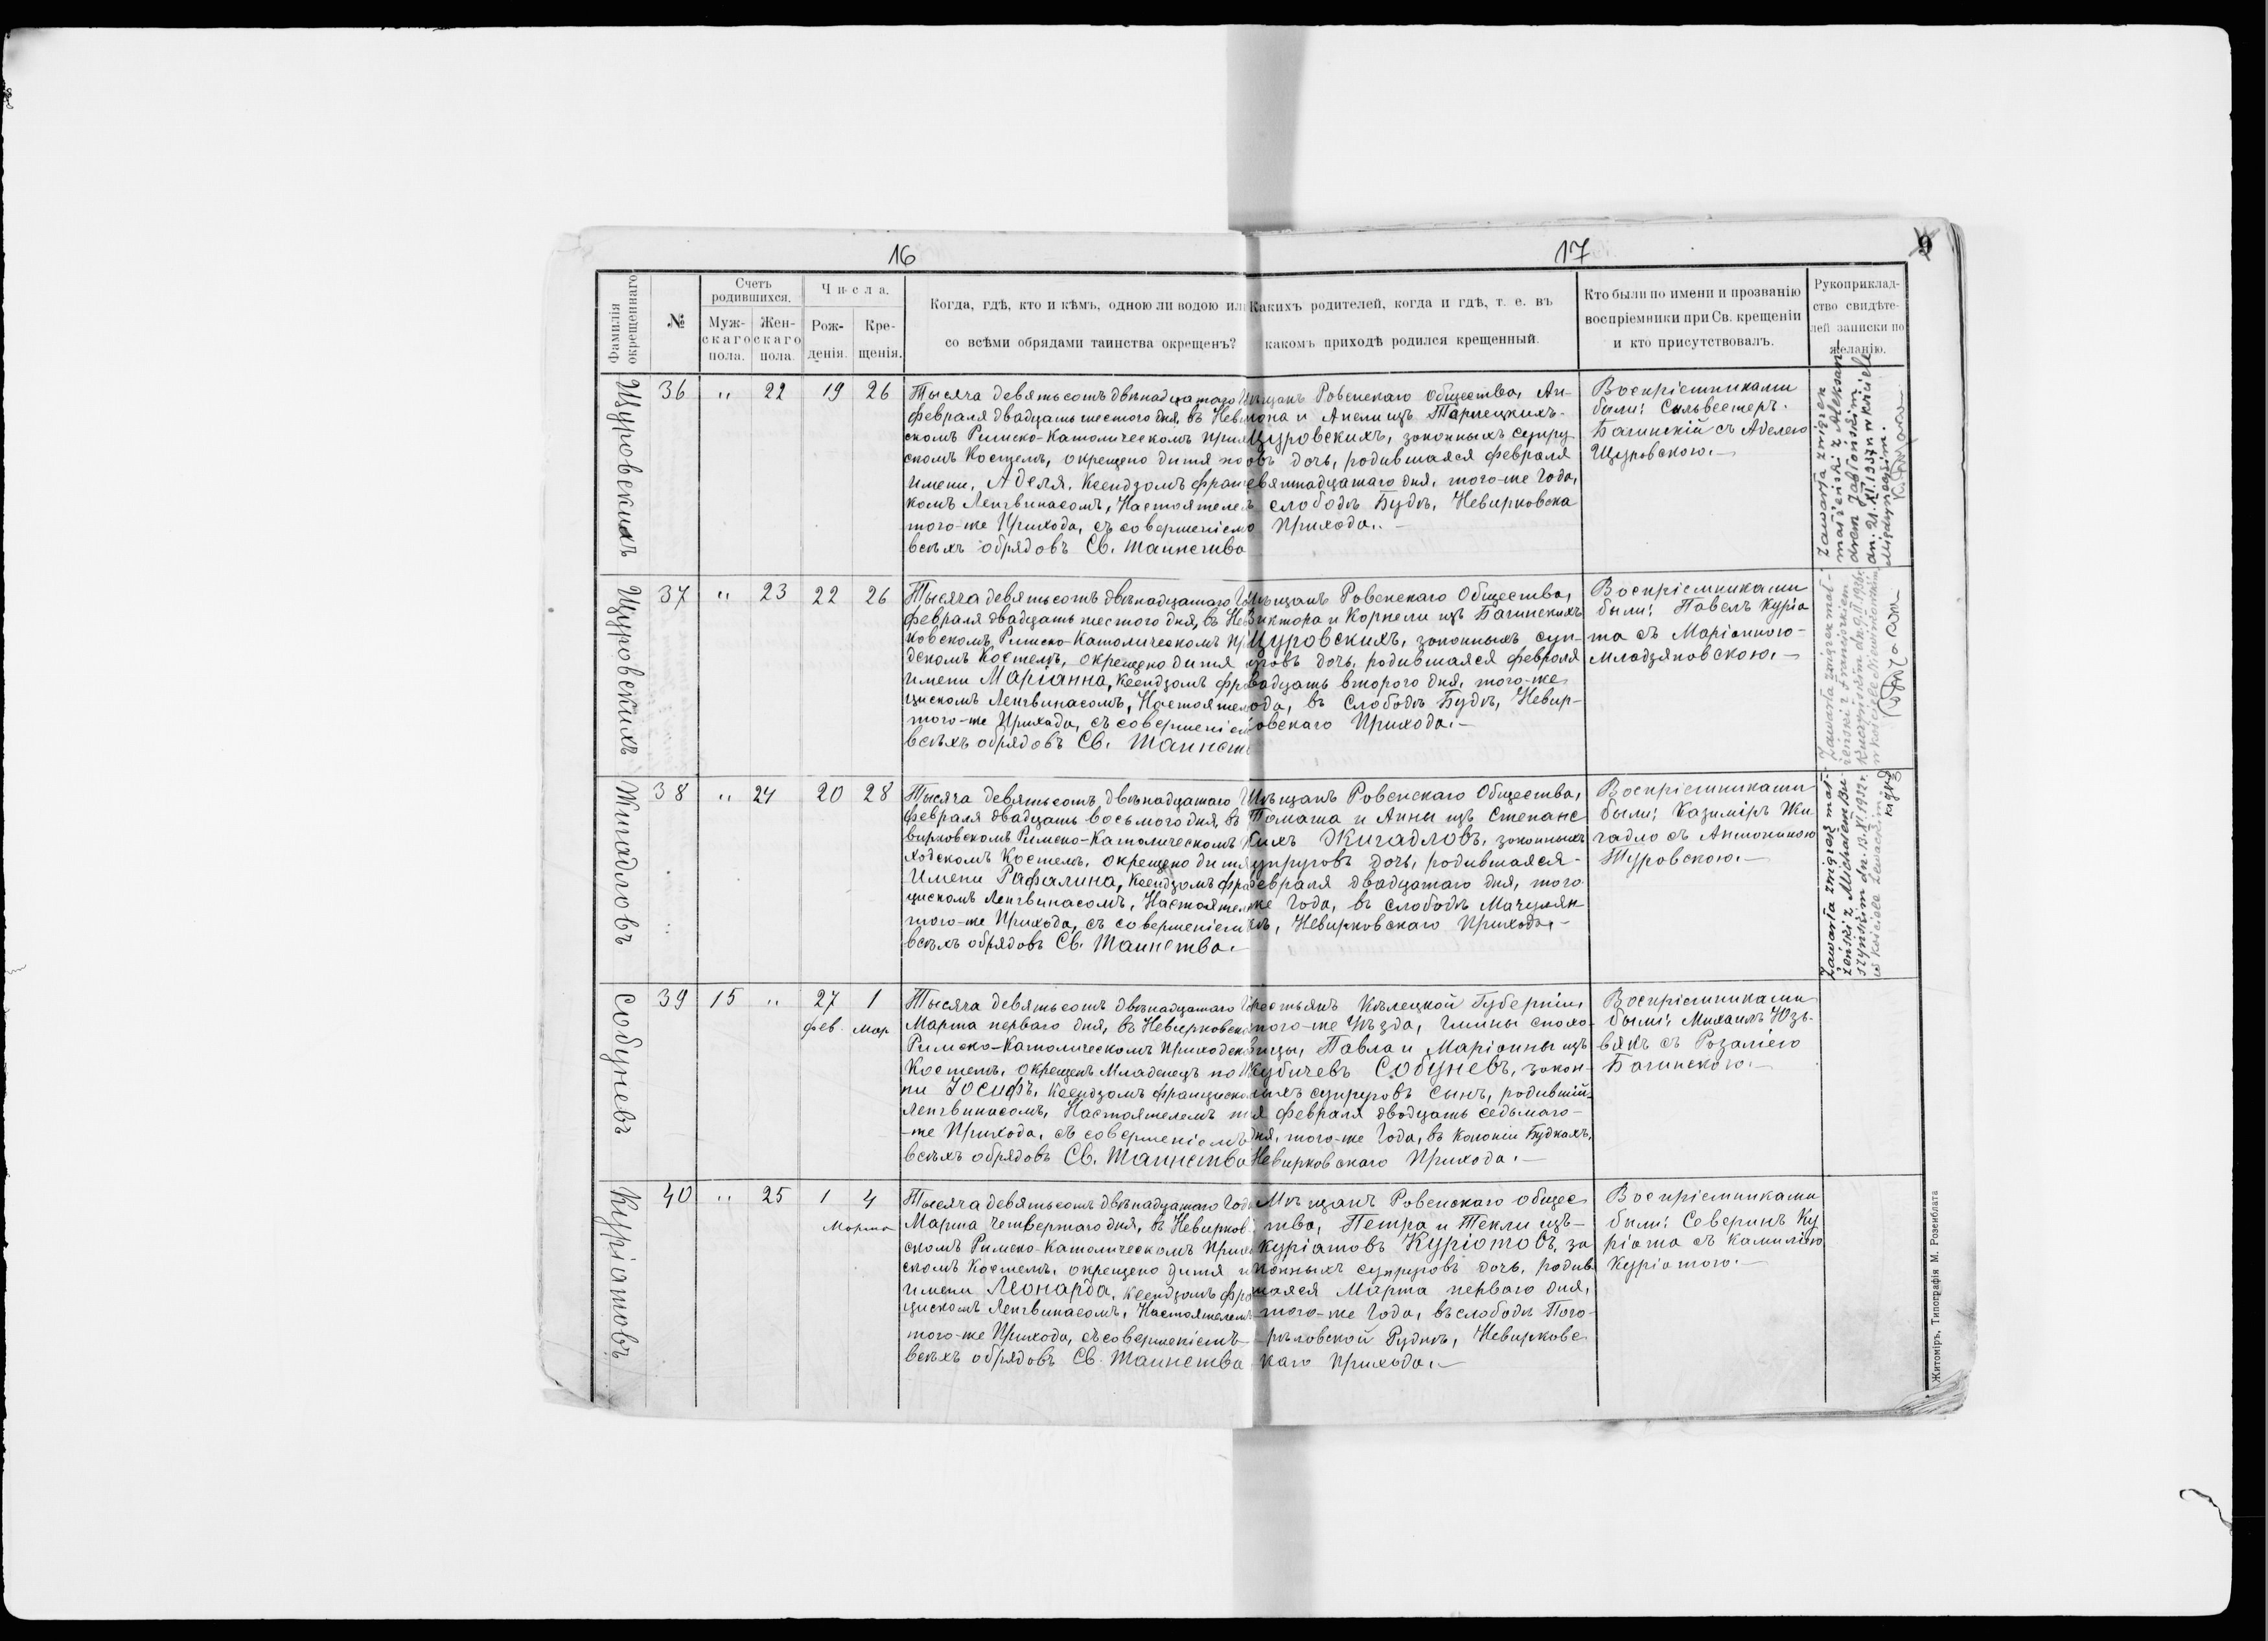 16
17
9
Фамилія окрещеннаго
№
Счетъ родившихся.
Мужскаго пола.
Женскаго пола.
Числа.
Рожденія.
Крещенія.
Когда, гдѣ, кто и кѣмъ, одною ли водою или
со всѣми обрядами таинства окрещенъ?
Какихъ родителей, когда и гдѣ, т. е. въ
какомъ приходѣ родился крещенный.
Кто были по имени и прозванію
воспріемники при Св. крещеніи
и кто присутствовалъ.
Рукоприклад-
ство свидѣте-
лей записки по
желанію.
Щуровскихъ
36 " 22 19 26
Тысяча девятьсотъ двѣнадцатаго
февраля двадцать шестого дня, въ Нев
скомъ Римско-Католическомъ Прих
скомъ Костелѣ, окрещено дитя по
имени, Аделя, Ксендзомъ Фран
комъ Ленгвинасомъ, Настоятелем
того-же Прихода, съ совершеніемъ
всѣхъ обрядовъ Св. Таинства
Мѣщанъ Ровенскаго Общества, Ан-
тона и Анели изъ Тарнецкихъ-
Щуровскихъ, законныхъ супру
овъ дочь, родившаяся февраля
евятнадцатаго дня, того-же Года,
слободѣ Будѣ, Невирковска
Прихода.-
Воспріемниками
были: Сильвестеръ
Багинскій съ Аделею
Щуровскою.-
Zawarła związek
małżeński z Aleksan-
drem Jabłońskim
dn. 21.XI.1937 r. w kościele
Międzyrzeckim.
Щуровскихъ
37 " 23 22 26
Тысяча девятьсотъ двѣнадцатаго Го
февраля двадцать шестого дня, въ Нев
ковскомъ Римско-Католическомъ Пр
дскомъ Костелѣ, окрещено дитя
имени Маріанна, Ксендзомъ Фра
цискомъ Ленгвинасомъ, Настояте
того-же Прихода, съ совершеніем
всѣхъ обрядовъ Св. Таинст
Мѣщанъ Ровенскаго Общества,
Виктора и Корнели изъ Багинскихъ
Щуровскихъ, законныхъ суп-
уговъ дочь, родившаяся февраля
вадцать второго дня, того-же
ода, въ Слободѣ Будѣ, Невир-
овскаго Прихода.-
Воспріемниками
были: Павелъ Куріа
та съ Маріанною-
Млодзяновскою.-
Zawarła związek mał-
żeński z Franciszkiem
w kościele Niewirkowskim
Жигадловъ
38 " 24 20 28
Тысяча девятьсотъ двѣнадцатаго Г
февраля двадцать восьмого дня, въ
вирковскомъ Римско-Католическомъ
ходскомъ Костелѣ, окрещено дитя
имени Рафалина, Ксендзомъ Фра
цискомъ Ленгвинасомъ, Настояте
того-же Прихода, съ совершеніем
всѣхъ обрядовъ Св. Таинства.-
Мѣщанъ Ровенскаго Общества,
Томаша и Анны изъ Степанс
кихъ Жигадловъ, законныхъ
супруговъ дочь, родившаяся-
февраля двадцатаго дня, того
же Года, въ слободѣ Мачулян
кѣ, Невирковскаго Прихода.-
Воспріемниками
были: Казиміръ Жи
гадло съ Антониною
Туровскою.-
Zawarła związek mał-
żeński z Michałem Bu-
szyńskim dn. 13.XI.1932 r.
w kościele
Собуневъ
39 15 " 27 1
фев. Мар
Тысяча девятьсотъ двѣнадцатаго Го
Марта перваго дня, въ Невирковско
Римско-Католическомъ Приходско
Костелѣ, окрещенъ Младенецъ по И
ни Іосифъ, Ксендзомъ Франциско
Ленгвинасомъ, Настоятелемъ т
-же Прихода, съ совершеніемъ
всѣхъ обрядовъ Св. Таинства
Крестьянъ Кѣлецкой Губерніи,
того-же Уѣзда, Гмины сполхо
вицы, Павла и Маріанны изъ
Кубичевъ Собуневъ, закон
ныхъ супруговъ сынъ, родившій-
я февраля двадцать седьмаго-
дня, того-же Года, въ колоніи Будкахъ,
Невирковскаго Прихода.-
Воспріемниками
были: Михаилъ Юзь-
вякъ съ Розаліею
Багинскою.-
Куріатовъ
40 " 25 1 4
Марта
Тысяча девятьсотъ двѣнадцатаго Года
Марта четвертаго дня, въ Невирков
скомъ Римско-Католическомъ Прихо
скомъ Костелѣ, окрещено дитя п
имени Леонарда, Ксендзомъ Фра
цискомъ Ленгвинасомъ, Настоятелемъ
того-же Прихода, съ совершеніемъ
всѣхъ обрядовъ Св. Таинства
Мѣщанъ Ровенскаго общес
тва, Петра и Текли изъ-
Куріатовъ Куріатовъ, за
конныхъ супруговъ дочь, родив
шаяся Марта перваго дня,
того-же Года, въ слободѣ Пого-
рѣловской Руднѣ, Невирковс
каго Прихода.-
Воспріемниками
были: Северинъ Ку
ріата съ Камилею
Куріатою.-
Житоміръ, Типографія М. Розенблата